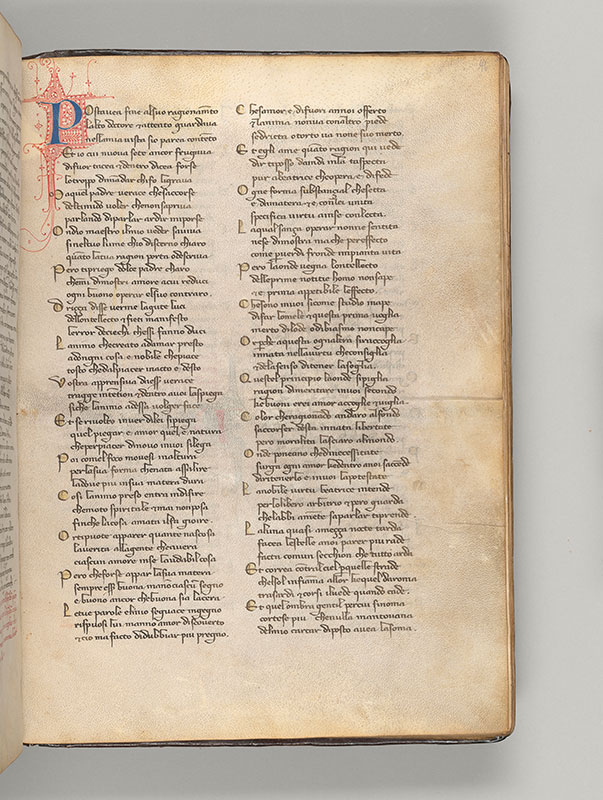 Postavea fine alsuo ragionamto
lalto dctore et attento guardava
nellamia vista sio parea conteto
Et io cui nuova sete ancor frugava
difuor tacea et dentro dicea forse
lotroppo dimadar chifo lagrava
Ma quel padre verace chesaccorse
deltimido voler chenonsapriva
parlando diparlar ardir miporse
Ondio maestro ilmio veder savviva
sineltuo lume chio discerno chiaro
quato latua ragion porta odescriva
Pero tipriego dolce padre charo
chemi dimostri amore acui reduci
ogni buono operar elsuo contraro
Drizza disse verme lagute luci
dellontelletto et fieti manifesto
lerror deciechi chessi fanno duci
Lanimo checreato adamar presto
adongni cosa e nobile chepiace
tosto chedalpiacer inatto e desto
Vostra apprensiva daesser verace
tragge intetion et dentro avoi laspiega
siche lanimo adessa volger face
Et se rivolto inver dilei sipiega
quel piegar e amor quel e natura
cheperpiacer dinovo invoi silega
Poi comel foco movesi inaltura
perlasua forma chenata assalire
ladove piu insua matera dura
Cosi lanimo preso entra indisire
chemoto spiritale et mai nonposa
finche lacosa amata ilfa gioire
Or tipuote apparer quante nascosa
laverita allagente chevvera
ciascun amore inse laudabil cosa
Pero cheforse appar lasua matera
sempre esser buona manonciascun segno
e buono ancor chebuona sia lacera
Letue parole elmio seguace ingegno
rispuosi lui manno amor discoverto
et cio ma facto didubbiar piu pregno
Chesamor e difuori annoi offerto
et lanima nonva conaltro piede
sedricta otorto va none suo merto
Et egli ame quato ragion qui vede
dir tiposso dainda inla taspecta
pur abeatrice cheopera e difede
Ogne forma substangial chesetta
e dimatera et e conlei unita
specifica virtu ainse conlecta
Laqual sanza operar nonne sentita
nese dimostra ma che pereffecto
come pverdi fronde inpianta vita
Pero laonde vegna lontellecto
delleprime notitie homo nonsape
et e primi appetibile laffecto
Chesono invoi sicome studio inape
difar lomele et questa prima voglia
merto dilode odibiasmo noncape
Or perche aquesta ognaltra siraccoglia
innata nellavirtu checonsiglia
et delasenso ditener lasoglia
Questel principio laonde sipiglia
ragion dimeritare invoi secondo
che buoni erei amor accoglie et viglia
Color cheragionando andaro alfondo
saccorser desta innata libertate
pero moralita lasciaro almondo
Onde poniano chedinecessitate
surga ogni amor kedentro avoi saccende
diritenerlo e invoi lapotestate
Lanobile virtu beatrice intende
perlolibero arbitrio et pero guarda
chelabbi amete saparlar tiprende
Laluna quasi amezza nocte tarda
facea lestelle anoi parer piu rade
facta comun secchion che tutto arda
Et correa contra l ciel pquelle strade
chelsol infiama allor kequel daroma
trasardi et corsi ilvede quando cade
Et quel ombra gentil percui sinoma
cortese piu chenvilla mantovana
delmio carcar diposto avea lasoma